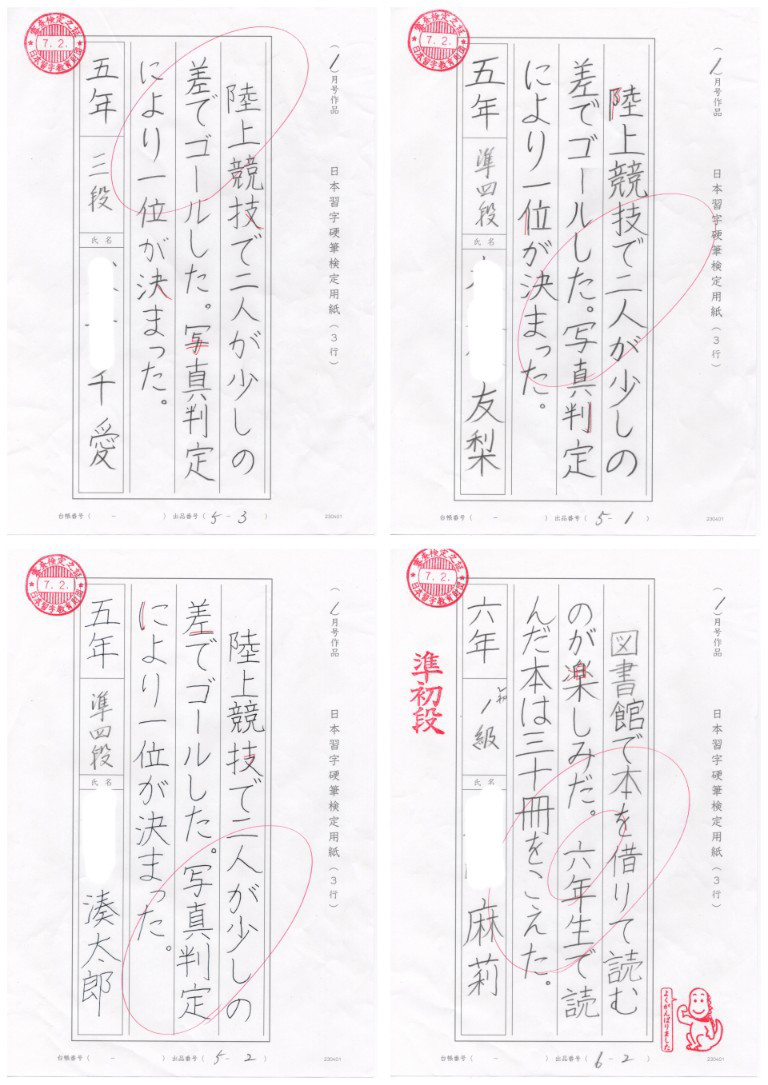 書写検定之証
7. 2.
日本習字教育財団
(1)月号作品
日本習字硬筆検定用紙(3行)
陸上競技で二人が少しの
差でゴールした。写真判定
により一位が決まった。
五年
三段
氏名
千愛
台帳番号( - )
出品番号(5-3)
230401
7. 2.
日本習字教育財団
(1)月号作品
日本習字硬筆検定用紙(3行)
陸上競技で二人が少しの
差でゴールした。写真判定
により一位が決まった。
五年
準四段
氏名
友梨
台帳番号( - )
出品番号(5-1)
230401
7. 2.
日本習字教育財団
(1)月号作品
日本習字硬筆検定用紙(3行)
陸上競技で二人が少しの
差でゴールした。写真判定
により一位が決まった。
五年
準四段
氏名
湊太郎
台帳番号( - )
出品番号(5-2)
230401
7. 2.
日本習字教育財団
(1)月号作品
日本習字硬筆検定用紙(3行)
図書館で本を借りて読む
のが楽しみだ。六年生で読
んだ本は三十冊をこえた。
六年
1級
氏名
麻莉
準初段
よくがんばりました
台帳番号( - )
出品番号(6-2)
230401